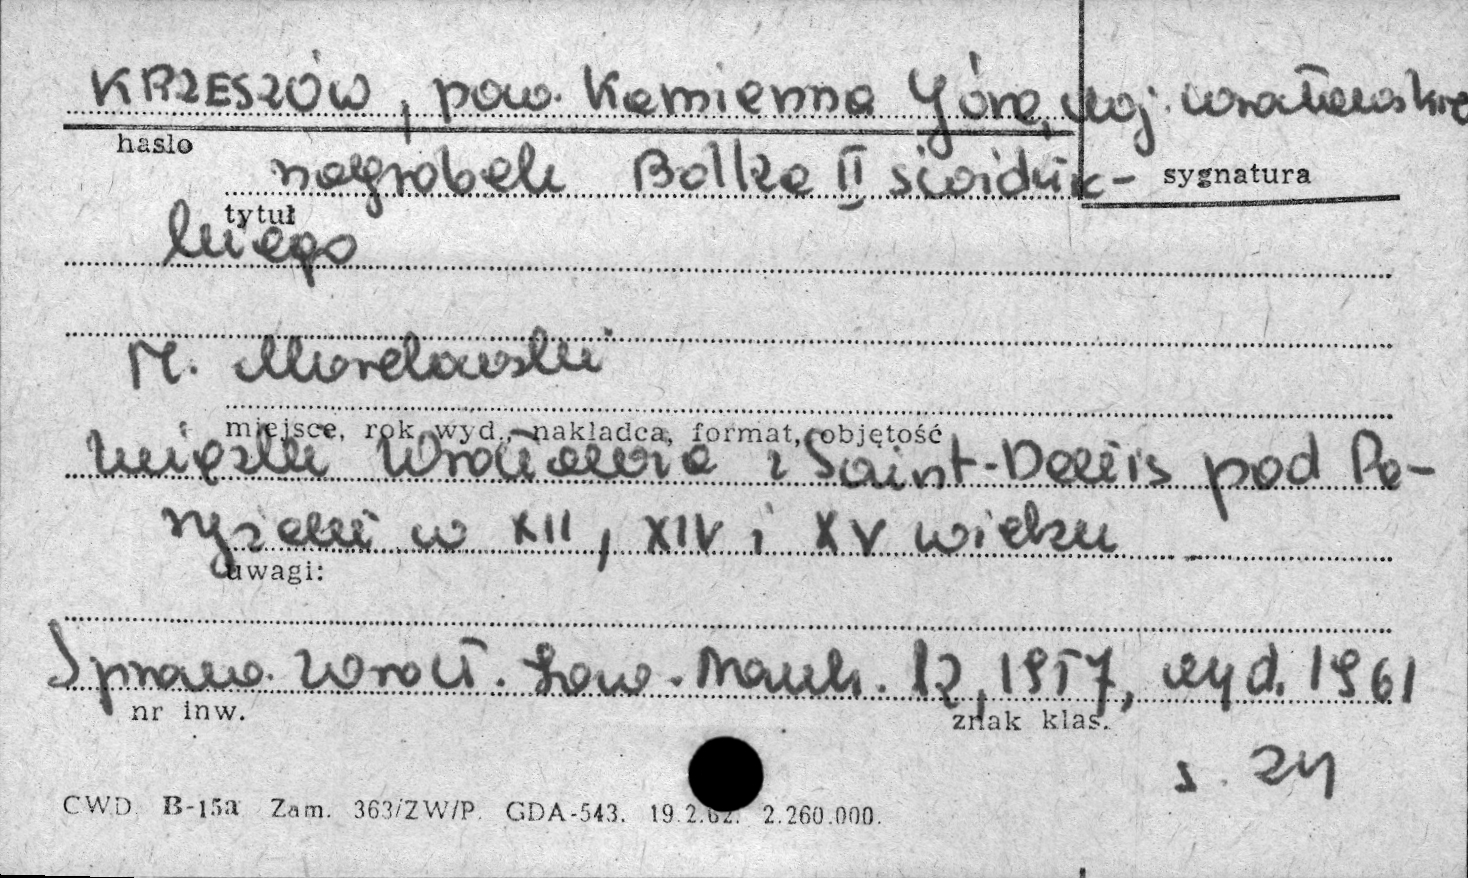 KRZESZÓW, pow. Kamienna Góra, woj. wrocławskie
hasło
nagrobek Bolka II świdnic-
sygnatura
tytuł
kiego
M. Morelowski
miejsce, rok wyd., nakładca, format, objętość
między Wrocławia i Saint-Denis pod Pa-
ryżem w XII, XIV i XV wieku
uwagi:
Spraw. Wrocł. Tow. Nauk. 12, 1957, wyd. 1961
nr inw.
znak klas.
s. 24
CWD. B-15a Zam. 363/ZW/P. GDA-543. 19.2.62. 2.260.000.